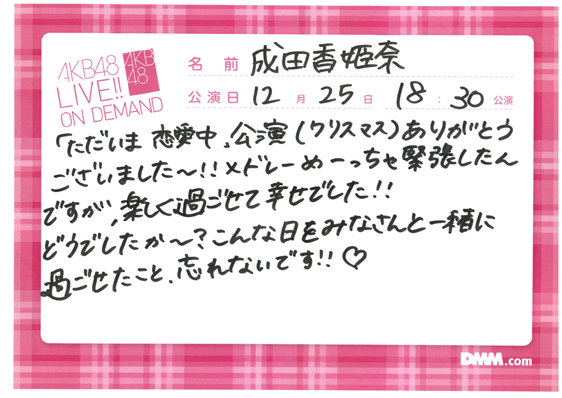 AKB48
LIVE!!
ON DEMAND
AKB
48
名前 成田香姫奈
公演日 12月25日 18:30公演
「ただいま 恋愛中」公演(クリスマス)ありがとう
ございました〜!!メドレーめーっちゃ緊張したん
ですが、楽しく過ごせて幸せでした!!
どうでしたか〜?こんな日をみなさんと一緒に
過ごせたこと、忘れないです!!♡
DMM.com